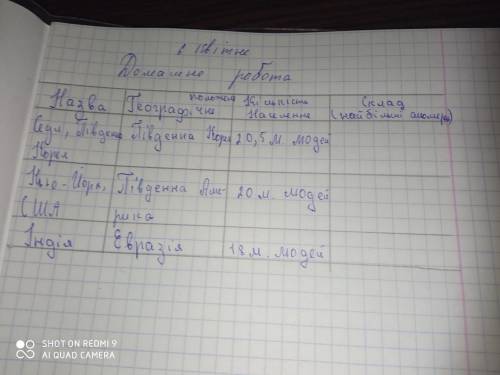 6 квітня
Домашня робота
Назва
Географічне положен
Кількість Населення
Склад (найбільші агломера
Сеул, Південна Корея
Південна Корея
20,5 м. людей
Нью-Йорк, США
Південна Америка
20 м. людей
Індія
Євразія
18 м. людей
SHOT ON REDMI 9
AI QUAD CAMERA